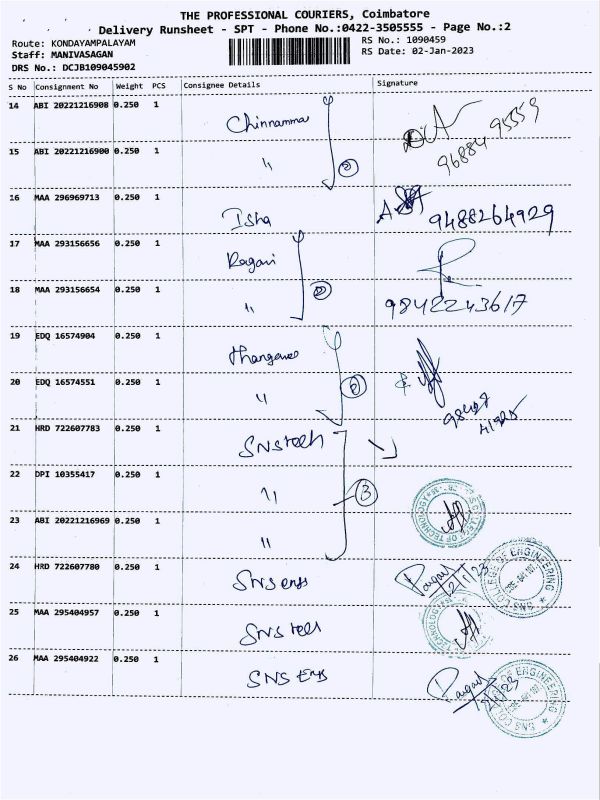 THE PROFESSIONAL COURIERS, Coimbatore
Delivery Runsheet - SPT - Phone No.:0422-3505555 - Page No.:2
Route: KONDAYAMPALAYAM
RS No.: 1090459
Staff: MANIVASAGAN
RS Date: 02-Jan-2023
DRS No.: DCJB109045902
S No Consignment No Weight PCS Consignee Details Signature
14 ABI 20221216908 0.250 1 Chinnammal
15 ABI 20221216900 0.250 1 " 2 96884 95559
16 MAA 296969713 0.250 1 Isha 9488264929
17 MAA 293156656 0.250 1 Ragavi
18 MAA 293156654 0.250 1 " 2 9842243617
19 EDQ 16574904 0.250 1
20 EDQ 16574551 0.250 1 "
21 HRD 722607783 0.250 1 SNS tech
22 DPI 10355417 0.250 1 " 3
23 ABI 20221216969 0.250 1 "
OF TECHNOLOGY
24 HRD 722607780 0.250 1 SNS engg 2/1/23
SNS COLLEGE OF ENGINEERING
25 MAA 295404957 0.250 1 SNS tech
26 MAA 295404922 0.250 1 SNS Engg 2/1/23
SNS COLLEGE OF ENGINEERING